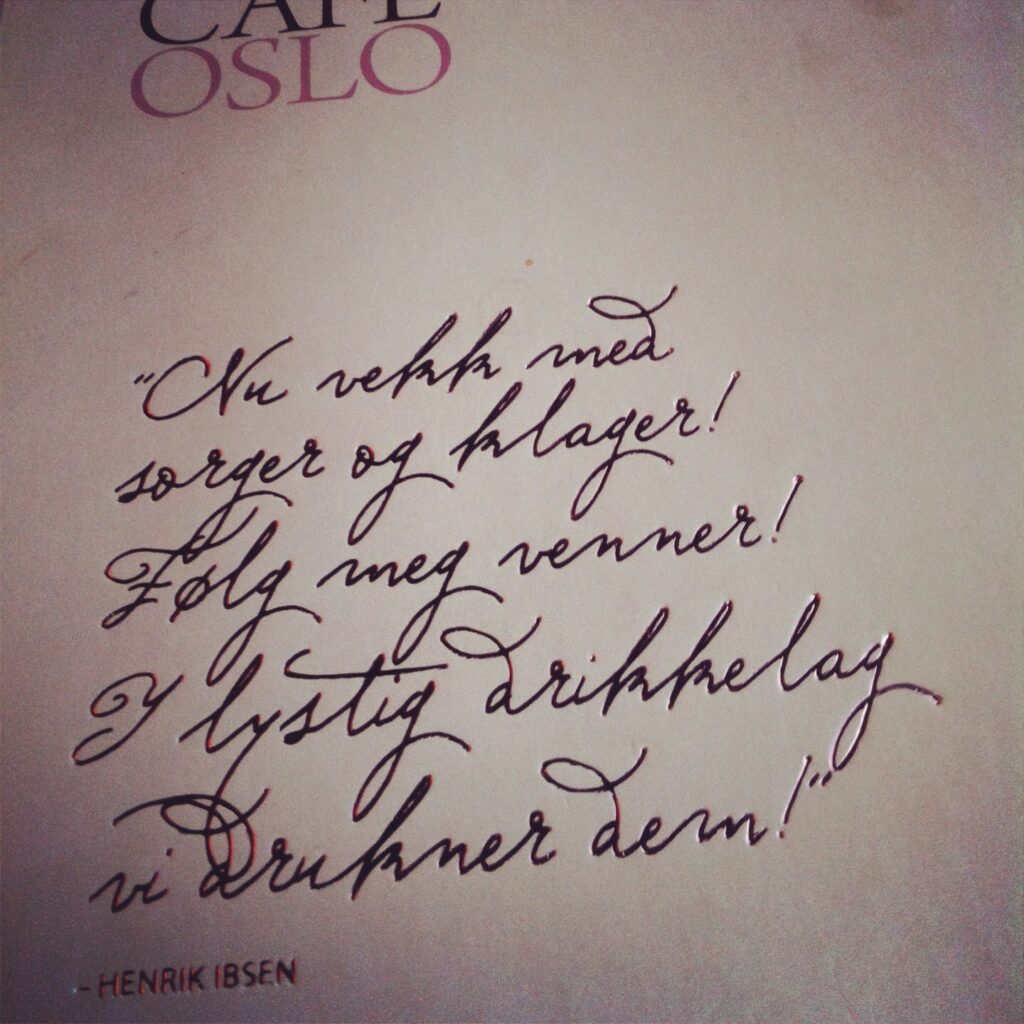 CAFE
OSLO
"Nu vekk med
sorger og klager!
Følg meg venner!
I lystig drikkelag
vi drukner dem!"
- HENRIK IBSEN